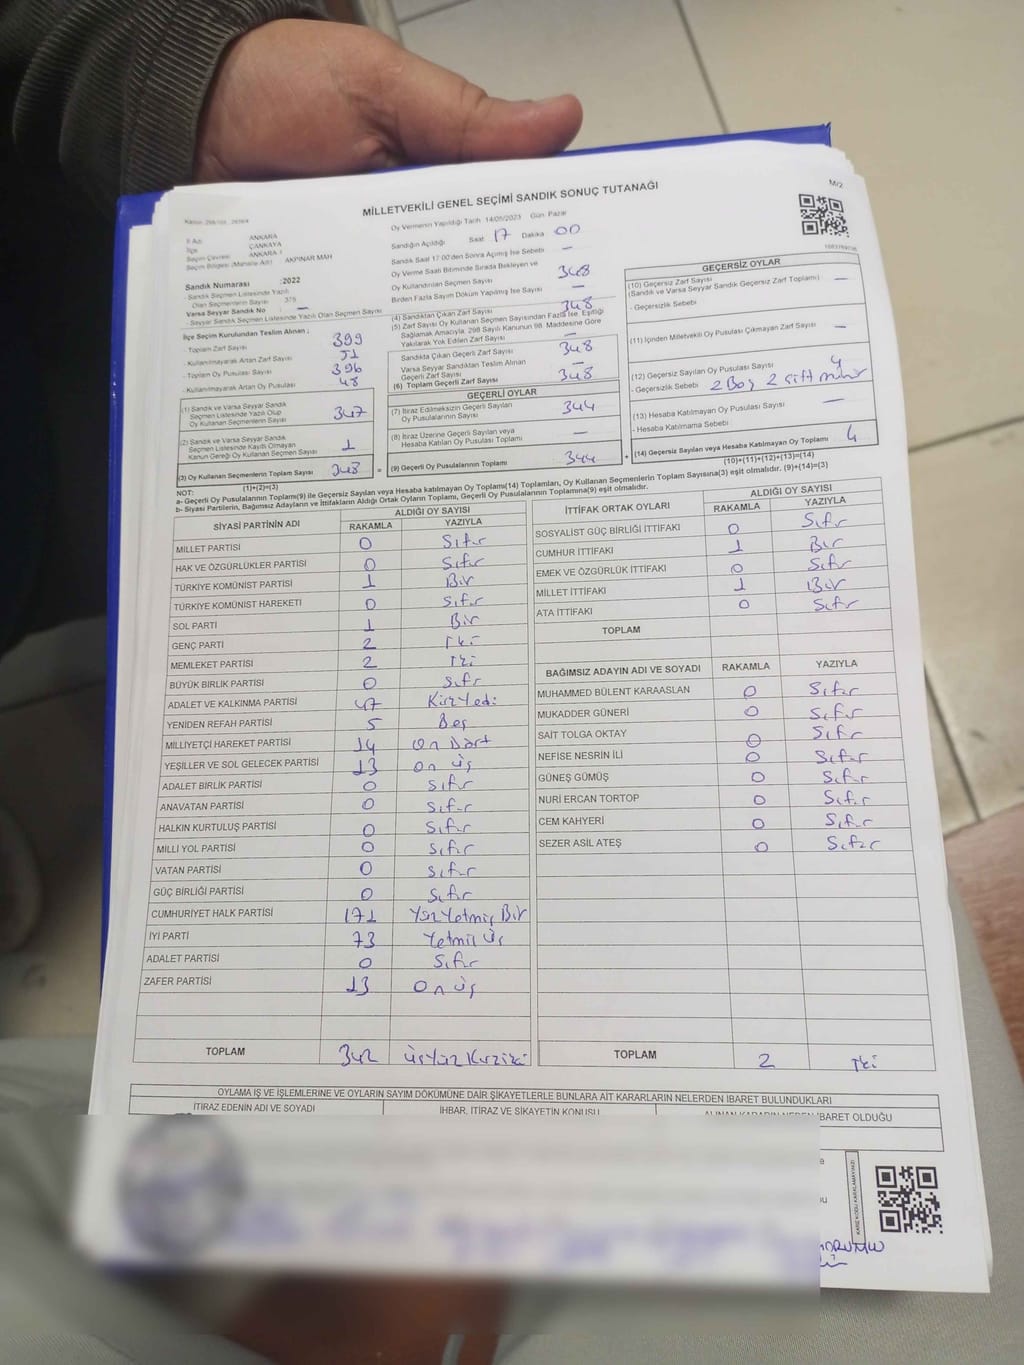 MİLLETVEKİLİ GENEL SEÇİMİ SANDIK SONUÇ TUTANAĞI
M/2
Oy Vermenin Yapıldığı Tarih 14/05/2023 Gün Pazar
İl Adı ANKARA
İlçe ÇANKAYA
Seçim Çevresi ANKARA 1
Seçim Bölgesi (Mahalle Adı) AKPINAR MAH
Sandığın Açıldığı Saat 17 Dakika 00
Sandık Saat 17.00'den Sonra Açılmış İse Sebebi —
Oy Verme Saati Bitiminde Sırada Bekleyen ve
Oy Kullandırılan Seçmen Sayısı 348
Birden Fazla Sayım Döküm Yapılmış İse Sayısı —
Sandık Numarası :2022
- Sandık Seçmen Listesinde Yazılı
Olan Seçmenlerin Sayısı 375
Varsa Seyyar Sandık No —
- Seyyar Sandık Seçmen Listesinde Yazılı Olan Seçmen Sayısı
İlçe Seçim Kurulundan Teslim Alınan ;
- Toplam Zarf Sayısı 399
- Kullanılmayarak Artan Zarf Sayısı 51
- Toplam Oy Pusulası Sayısı 396
- Kullanılmayarak Artan Oy Pusulası 48
(1) Sandık ve Varsa Seyyar Sandık
Seçmen Listesinde Yazılı Olup
Oy Kullanan Seçmenlerin Sayısı 347
(2) Sandık ve Varsa Seyyar Sandık
Seçmen Listesinde Kayıtlı Olmayan
Kanun Gereği Oy Kullanan Seçmen Sayısı 1
(3) Oy Kullanan Seçmenlerin Toplam Sayısı 348 =
(1)+(2)=(3)
(4) Sandıktan Çıkan Zarf Sayısı 348
(5) Zarf Sayısı Oy Kullanan Seçmen Sayısından Fazla İse, Eşitliği
Sağlamak Amacıyla, 298 Sayılı Kanunun 98. Maddesine Göre
Yakılarak Yok Edilen Zarf Sayısı —
Sandıkta Çıkan Geçerli Zarf Sayısı 348
Varsa Seyyar Sandıktan Teslim Alınan
Geçerli Zarf Sayısı —
(6) Toplam Geçerli Zarf Sayısı 348
GEÇERLİ OYLAR
(7) İtiraz Edilmeksizin Geçerli Sayılan
Oy Pusulalarının Sayısı 344
(8) İtiraz Üzerine Geçerli Sayılan veya
Hesaba Katılan Oy Pusulası Toplamı —
(9) Geçerli Oy Pusulalarının Toplamı 344 +
GEÇERSİZ OYLAR
(10) Geçersiz Zarf Sayısı
(Sandık ve Varsa Seyyar Sandık Geçersiz Zarf Toplamı) —
- Geçersizlik Sebebi
(11) İçinden Milletvekili Oy Pusulası Çıkmayan Zarf Sayısı —
(12) Geçersiz Sayılan Oy Pusulası Sayısı 4
- Geçersizlik Sebebi 2 Boş 2 Çift mühür
(13) Hesaba Katılmayan Oy Pusulası Sayısı —
- Hesaba Katılmama Sebebi
(14) Geçersiz Sayılan veya Hesaba Katılmayan Oy Toplamı 4
(10)+(11)+(12)+(13)=(14)
NOT:
a- Geçerli Oy Pusulaları Toplamı(9) ile Geçersiz Sayılan veya Hesaba Katılmayan Oy Toplamı(14) Toplamları, Oy Kullanan Seçmenlerin Toplam Sayısına(3) eşit olmalıdır. (9)+(14)=(3)
b- Siyasi Partilerin, Bağımsız Adayların ve İttifakların Aldığı Ortak Oyların Toplamı, Geçerli Oy Pusulalarının Toplamına(9) eşit olmalıdır.
SİYASİ PARTİNİN ADI ALDIĞI OY SAYISI
RAKAMLA YAZIYLA
MİLLET PARTİSİ 0 Sıfır
HAK VE ÖZGÜRLÜKLER PARTİSİ 0 Sıfır
TÜRKİYE KOMÜNİST PARTİSİ 1 Bir
TÜRKİYE KOMÜNİST HAREKETİ 0 Sıfır
SOL PARTİ 1 Bir
GENÇ PARTİ 2 İki
MEMLEKET PARTİSİ 2 İki
BÜYÜK BİRLİK PARTİSİ 0 Sıfır
ADALET VE KALKINMA PARTİSİ 47 Kırk Yedi
YENİDEN REFAH PARTİSİ 5 Beş
MİLLİYETÇİ HAREKET PARTİSİ 14 On Dört
YEŞİLLER VE SOL GELECEK PARTİSİ 13 On üç
ADALET BİRLİK PARTİSİ 0 Sıfır
ANAVATAN PARTİSİ 0 Sıfır
HALKIN KURTULUŞ PARTİSİ 0 Sıfır
MİLLİ YOL PARTİSİ 0 Sıfır
VATAN PARTİSİ 0 Sıfır
GÜÇ BİRLİĞİ PARTİSİ 0 Sıfır
CUMHURİYET HALK PARTİSİ 171 Yüz Yetmiş Bir
İYİ PARTİ 73 Yetmiş Üç
ADALET PARTİSİ 0 Sıfır
ZAFER PARTİSİ 13 On üç
TOPLAM 342 üç Yüz Kırk iki
İTTİFAK ORTAK OYLARI ALDIĞI OY SAYISI
RAKAMLA YAZIYLA
SOSYALİST GÜÇ BİRLİĞİ İTTİFAKI 0 Sıfır
CUMHUR İTTİFAKI 1 Bir
EMEK VE ÖZGÜRLÜK İTTİFAKI 0 Sıfır
MİLLET İTTİFAKI 1 Bir
ATA İTTİFAKI 0 Sıfır
TOPLAM
BAĞIMSIZ ADAYIN ADI VE SOYADI RAKAMLA YAZIYLA
MUHAMMED BÜLENT KARAASLAN 0 Sıfır
MUKADDER GÜNERİ 0 Sıfır
SAİT TOLGA OKTAY 0 Sıfır
NEFİSE NESRİN İLİ 0 Sıfır
GÜNEŞ GÜMÜŞ 0 Sıfır
NURİ ERCAN TORTOP 0 Sıfır
CEM KAHYERİ 0 Sıfır
SEZER ASİL ATEŞ 0 Sıfır
TOPLAM 2 İki
OYLAMA İŞ VE İŞLEMLERİNE VE OYLARIN SAYIM DÖKÜMÜNE DAİR ŞİKAYETLERLE BUNLARA AİT KARARLARIN NELERDEN İBARET BULUNDUKLARI
İTİRAZ EDENİN ADI VE SOYADI İHBAR, İTİRAZ VE ŞİKAYETİN KONUSU ALINAN KARARIN NEDEN İBARET OLDUĞU